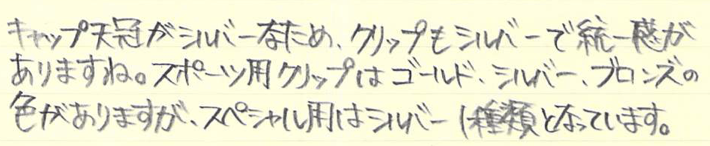 キャップ天冠がシルバーなため、クリップもシルバーで統一感が
ありますね。スポーツ用クリップはゴールド、シルバー、ブロンズの
色がありますが、スペシャル用はシルバー1種類となっています。